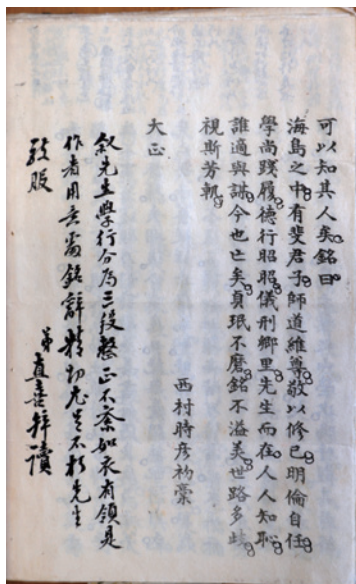 可以知其人矣銘曰
海島之中有斐君子師道維尊敬以修己明倫自任
學尚踐履德行昭昭儀刑鄉里先生而在人人知恥
誰適與謀今也亡矣貞珉不磨銘不溢美世路多歧
視斯芳軌
西村時彥初稾
大正
敘先生學行分為三段整正不紊如衣有領是
作者用意處銘辭精切先生不朽先生
致服
弟直喜拜讀